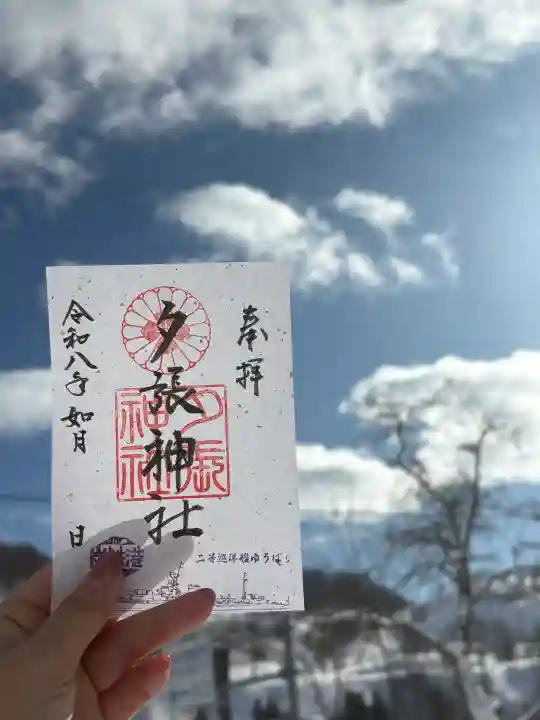 奉拝
夕張神社
夕張神社
令和八年如月
日
二等巡洋艦ゆうばり